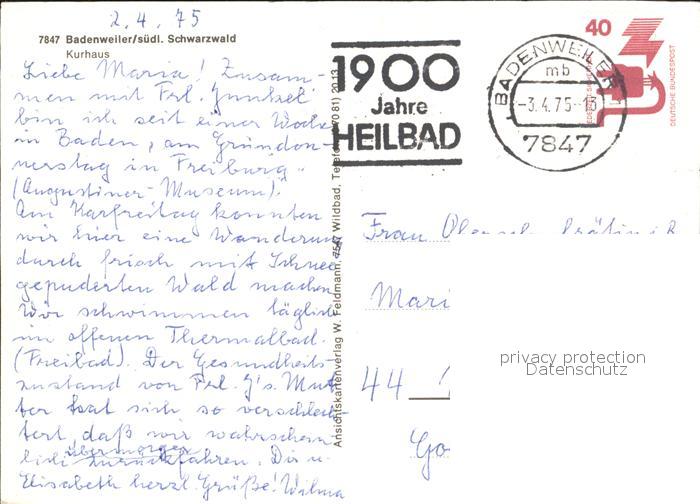 2.4.75
7847 Badenweiler/südl. Schwarzwald
Kurhaus
Liebe Maria! Zusam-
men mit Frl. Junkel
bin ich seit einer Woche
in Baden, am Gründon-
nerstag in Freiburg.
(Augustiner-Museum).
Am Karfreitag konnten
wir hier eine Wanderung
durch frisch mit Schnee
gepuderten Wald machen.
Wir schwimmen täglich
im offenen Thermalbad.
(Freibad). Der Gesundheits-
zustand von Frl. J's. Mut
ter hat sich so verschlech
tert, daß wir wahrschein
lich übermorgen zurückfahren. Dir u.
Elisabeth herzl. Grüße! Wilma
Ansichtskartenverlag W. Feldmann, 7547 Wildbad, Telefon (0 70 81) 20 13
1900
Jahre
HEILBAD
BADENWEILER 1
mb
-3.4.75-13
7847
40
DEUTSCHE BUNDESPOST
Frau
Mari
44
Go
privacy protection
Datenschutz